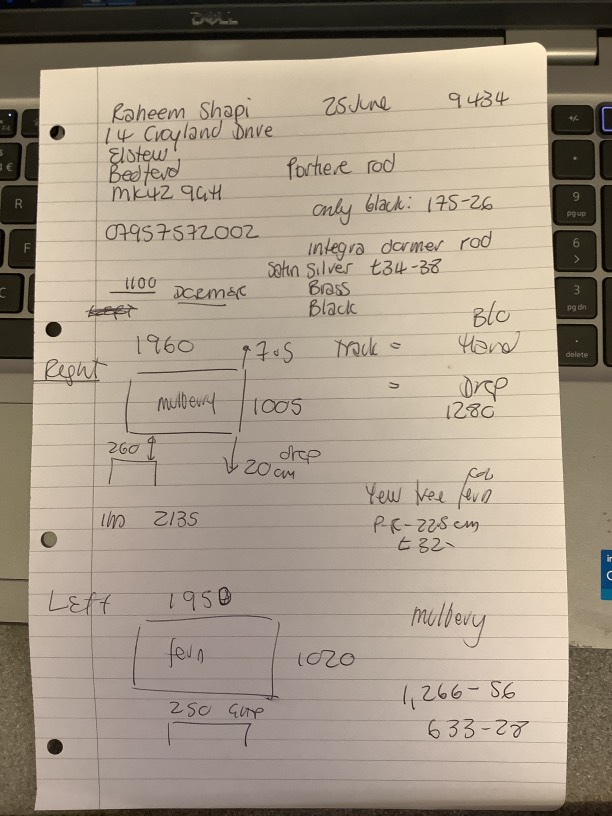 DELL
Raheem Shapi 25 June 9434
14 Crayland Drive
Elstew
Bedford
MK42 9GH
Portiere rod
only black: 175-26
07957572002
integra dormer rod
Satin Silver £34-38
1100 DORMER Brass
Left Black
Right 1960 ↑7.5 track = B/O Hand
mulberry 1005 = Drop 1280
260 ↕
↓ 20cm drop
Yew tree fern col
P-R-225cm
£32
2135
Left 1950
fern 1020
mulberry
250 Gap
1,266-56
633-28
9
pg up
6
3
pg dn
delete
R
F
C